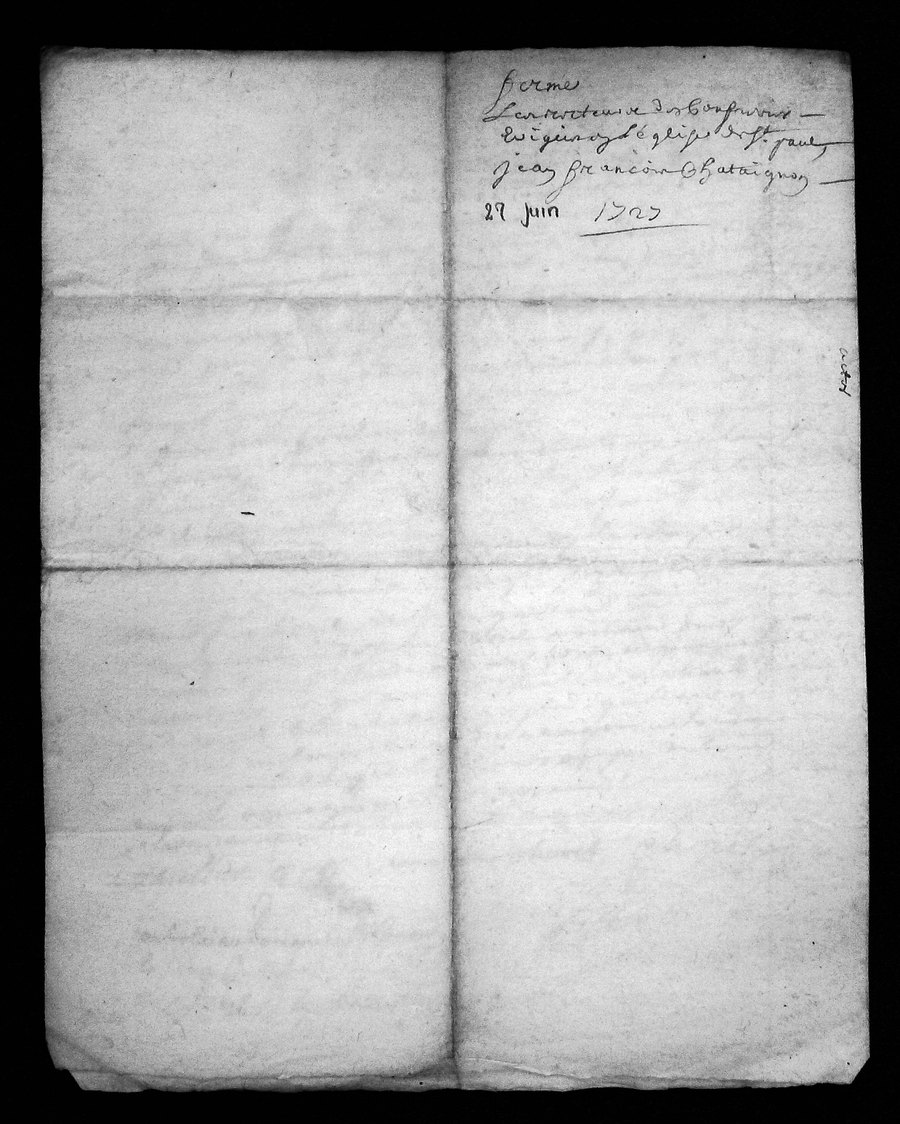 ferme
Les recteurs des confreries
erigées en l'église de St. paul
jean françois Chataignon
27 juin 1727